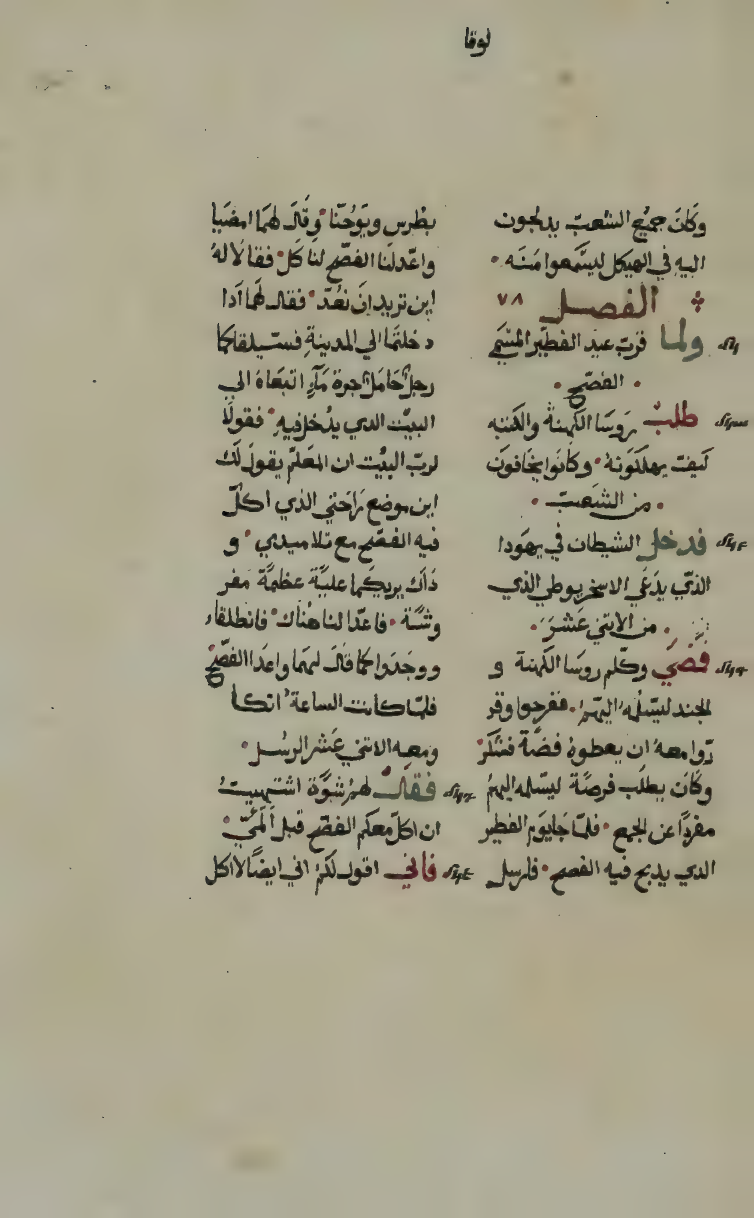 لوقا
وكان جميع الشعب يدلجون
اليه في الهيكل ليسمعوا منه
الفصل ٧٨
ولما قرب عيد الفطير المسمي
الفصح
طلب روسا الكهنة والكتبه
كيف يهلكونه وكانوا يخافون
من الشعب
فدخل الشيطان في يهودا
الذي يدعي الاسخريوطي الذي
من الاثني عشر
فمضي وكلم روسا الكهنة و
الجند ليسلمه اليهم ففرحوا وقر
روا معه ان يعطوه فضة فشكر
وكان يطلب فرصة ليسلمه اليهم
مفردا عن الجمع فلما جا يوم الفطير
الذي يدبح فيه الفصح فارسل
بطرس ويوحنا وقال لهما امضيا
واعدا لنا الفصح لناكل فقالا له
اين تريد ان نعد فقال لهما ادا
دخلتما الي المدينة فستيلقاكما
رجل حامل جرة مآء اتبعاه الي
البيت الدي يدخل فيه فقولا
لرب البيت ان المعلم يقول لك
اين موضع راحتي الذي اكل
فيه الفصح مع تلاميدي و
ذاك يريكما علية عظمة مفر
وشة فاعدا لنا هناك فانطلقا
ووجدوا كما قال لهما واعدا الفصح
فلما كانت الساعة اتكا
ومعه الاثني عشر الرسل
فقال لهم شوة اشتهيت
ان اكل معكم الفصح قبل المي
فاني اقول لكم اني ايضا لا اكل